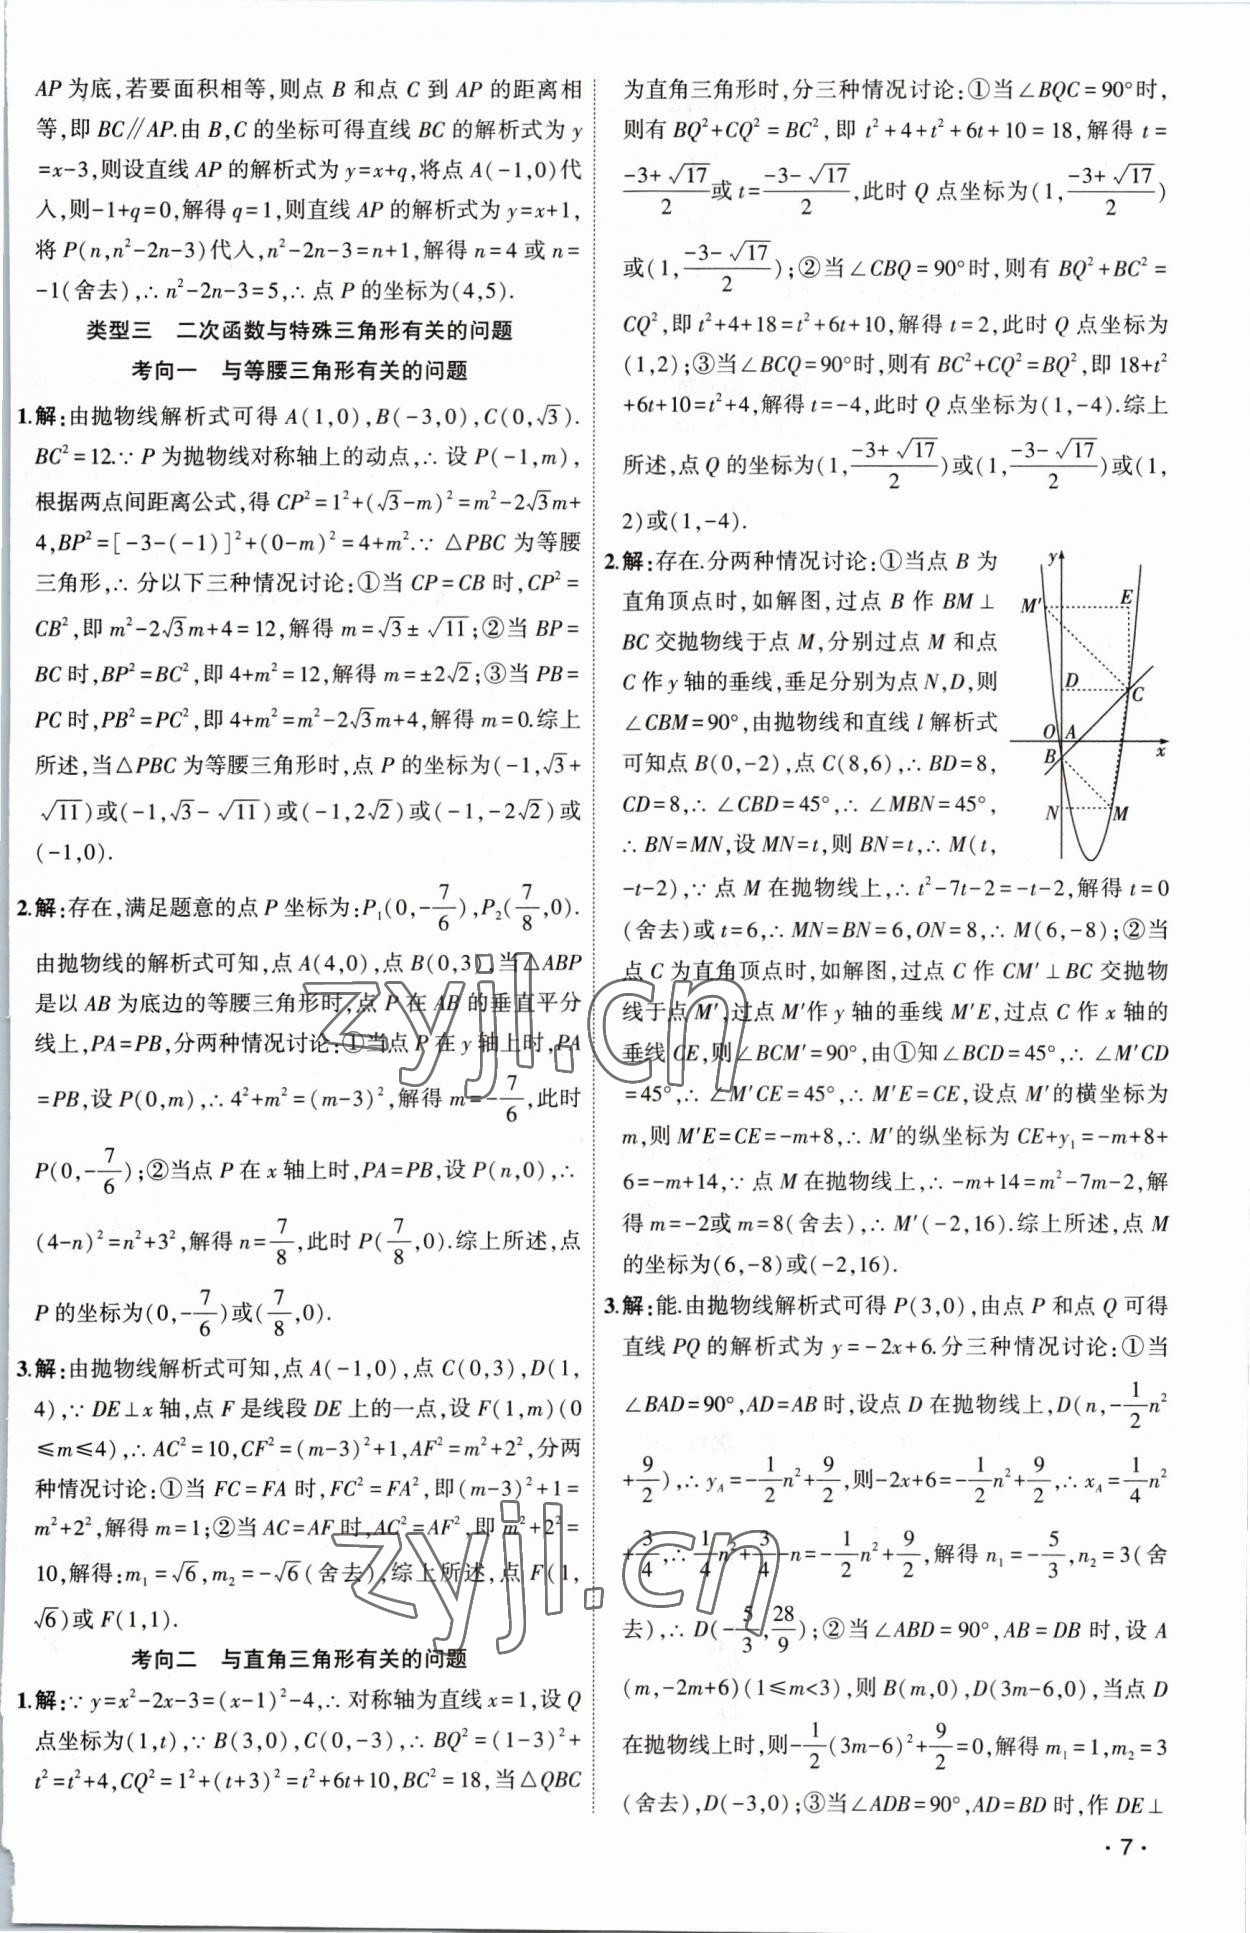 AP为底,若要面积相等,则点 B 和点 C 到 AP 的距离相
等,即 BC∥AP.由 B,C 的坐标可得直线 BC 的解析式为 y
=x-3,则设直线 AP 的解析式为 y=x+q,将点 A(-1,0)代
入,则-1+q=0,解得 q=1,则直线 AP 的解析式为 y=x+1,
将 P(n,n²-2n-3)代入,n²-2n-3=n+1,解得 n=4 或 n=
-1(舍去),∴n²-2n-3=5,∴点 P 的坐标为(4,5).
类型三 二次函数与特殊三角形有关的问题
考向一 与等腰三角形有关的问题
1.解:由抛物线解析式可得 A(1,0),B(-3,0),C(0,√3).
BC²=12.∵P 为抛物线对称轴上的动点,∴设 P(-1,m),
根据两点间距离公式,得 CP²=1²+(√3-m)²=m²-2√3m+
4,BP²=[-3-(-1)]²+(0-m)²=4+m².∵△PBC 为等腰
三角形,∴分以下三种情况讨论:①当 CP=CB 时,CP²=
CB²,即 m²-2√3m+4=12,解得 m=√3±√11;②当 BP=
BC 时,BP²=BC²,即 4+m²=12,解得 m=±2√2;③当 PB=
PC 时,PB²=PC²,即 4+m²=m²-2√3m+4,解得 m=0.综上
所述,当△PBC 为等腰三角形时,点 P 的坐标为(-1,√3+
√11)或(-1,√3-√11)或(-1,2√2)或(-1,-2√2)或
(-1,0).
2.解:存在,满足题意的点 P 坐标为:P₁(0,-7/6),P₂(7/8,0).
由抛物线的解析式可知,点 A(4,0),点 B(0,3),当△ABP
是以 AB 为底边的等腰三角形时,点 P 在 AB 的垂直平分
线上,PA=PB,分两种情况讨论:①当点 P 在 y 轴上时,PA
=PB,设 P(0,m),∴4²+m²=(m-3)²,解得 m=-7/6,此时
P(0,-7/6);②当点 P 在 x 轴上时,PA=PB,设 P(n,0),∴
(4-n)²=n²+3²,解得 n=7/8,此时 P(7/8,0).综上所述,点
P 的坐标为(0,-7/6)或(7/8,0).
3.解:由抛物线解析式可知,点 A(-1,0),点 C(0,3),D(1,
4),∵DE⊥x 轴,点 F 是线段 DE 上的一点,设 F(1,m)(0
≤m≤4),∴AC²=10,CF²=(m-3)²+1,AF²=m²+2²,分两
种情况讨论:①当 FC=FA 时,FC²=FA²,即(m-3)²+1=
m²+2²,解得 m=1;②当 AC=AF 时,AC²=AF²,即 m²+2²=
10,解得:m₁=√6,m₂=-√6(舍去),综上所述,点 F(1,
√6)或 F(1,1).
考向二 与直角三角形有关的问题
1.解:∵y=x²-2x-3=(x-1)²-4,∴对称轴为直线 x=1,设 Q
点坐标为(1,t),∵B(3,0),C(0,-3),∴BQ²=(1-3)²+
t²=t²+4,CQ²=1²+(t+3)²=t²+6t+10,BC²=18,当△QBC
为直角三角形时,分三种情况讨论:①当∠BQC=90°时,
则有 BQ²+CQ²=BC²,即 t²+4+t²+6t+10=18,解得 t=
(-3+√17)/2或 t=(-3-√17)/2,此时 Q 点坐标为(1,(-3+√17)/2)
或(1,(-3-√17)/2);②当∠CBQ=90°时,则有 BQ²+BC²=
CQ²,即 t²+4+18=t²+6t+10,解得 t=2,此时 Q 点坐标为
(1,2);③当∠BCQ=90°时,则有 BC²+CQ²=BQ²,即 18+t²
+6t+10=t²+4,解得 t=-4,此时 Q 点坐标为(1,-4).综上
所述,点 Q 的坐标为(1,(-3+√17)/2)或(1,(-3-√17)/2)或(1,
2)或(1,-4).
2.解:存在.分两种情况讨论:①当点 B 为
直角顶点时,如解图,过点 B 作 BM⊥
BC 交抛物线于点 M,分别过点 M 和点
C 作 y 轴的垂线,垂足分别为点 N,D,则
∠CBM=90°,由抛物线和直线 l 解析式
可知点 B(0,-2),点 C(8,6),∴BD=8,
CD=8,∴∠CBD=45°,∴∠MBN=45°,
∴BN=MN,设 MN=t,则 BN=t,∴M(t,
-t-2),∵点 M 在抛物线上,∴t²-7t-2=-t-2,解得 t=0
(舍去)或 t=6,∴MN=BN=6,ON=8,∴M(6,-8);②当
点 C 为直角顶点时,如解图,过点 C 作 CM′⊥BC 交抛物
线于点 M′,过点 M′作 y 轴的垂线 M′E,过点 C 作 x 轴的
垂线 CE,则∠BCM′=90°,由①知∠BCD=45°,∴∠M′CD
=45°,∴∠M′CE=45°,∴M′E=CE,设点 M′的横坐标为
m,则 M′E=CE=-m+8,∴M′的纵坐标为 CE+y₁=-m+8+
6=-m+14,∵点 M 在抛物线上,∴-m+14=m²-7m-2,解
得 m=-2或 m=8(舍去),∴M′(-2,16).综上所述,点 M
的坐标为(6,-8)或(-2,16).
y
M′
E
D
C
O
A
x
B
N
M
3.解:能.由抛物线解析式可得 P(3,0),由点 P 和点 Q 可得
直线 PQ 的解析式为 y=-2x+6.分三种情况讨论:①当
∠BAD=90°,AD=AB 时,设点 D 在抛物线上,D(n,-1/2n²
+9/2),∴y_A=-1/2n²+9/2,则-2x+6=-1/2n²+9/2,∴x_A=1/4n²
+3/4,∴1/4n²+3/4-n=-1/2n²+9/2,解得 n₁=-5/3,n₂=3(舍
去),∴D(-5/3,28/9);②当∠ABD=90°,AB=DB 时,设 A
(m,-2m+6)(1≤m<3),则 B(m,0),D(3m-6,0),当点 D
在抛物线上时,则-1/2(3m-6)²+9/2=0,解得 m₁=1,m₂=3
(舍去),D(-3,0);③当∠ADB=90°,AD=BD 时,作 DE⊥
·7·
zyjl.cn
zyjl.cn